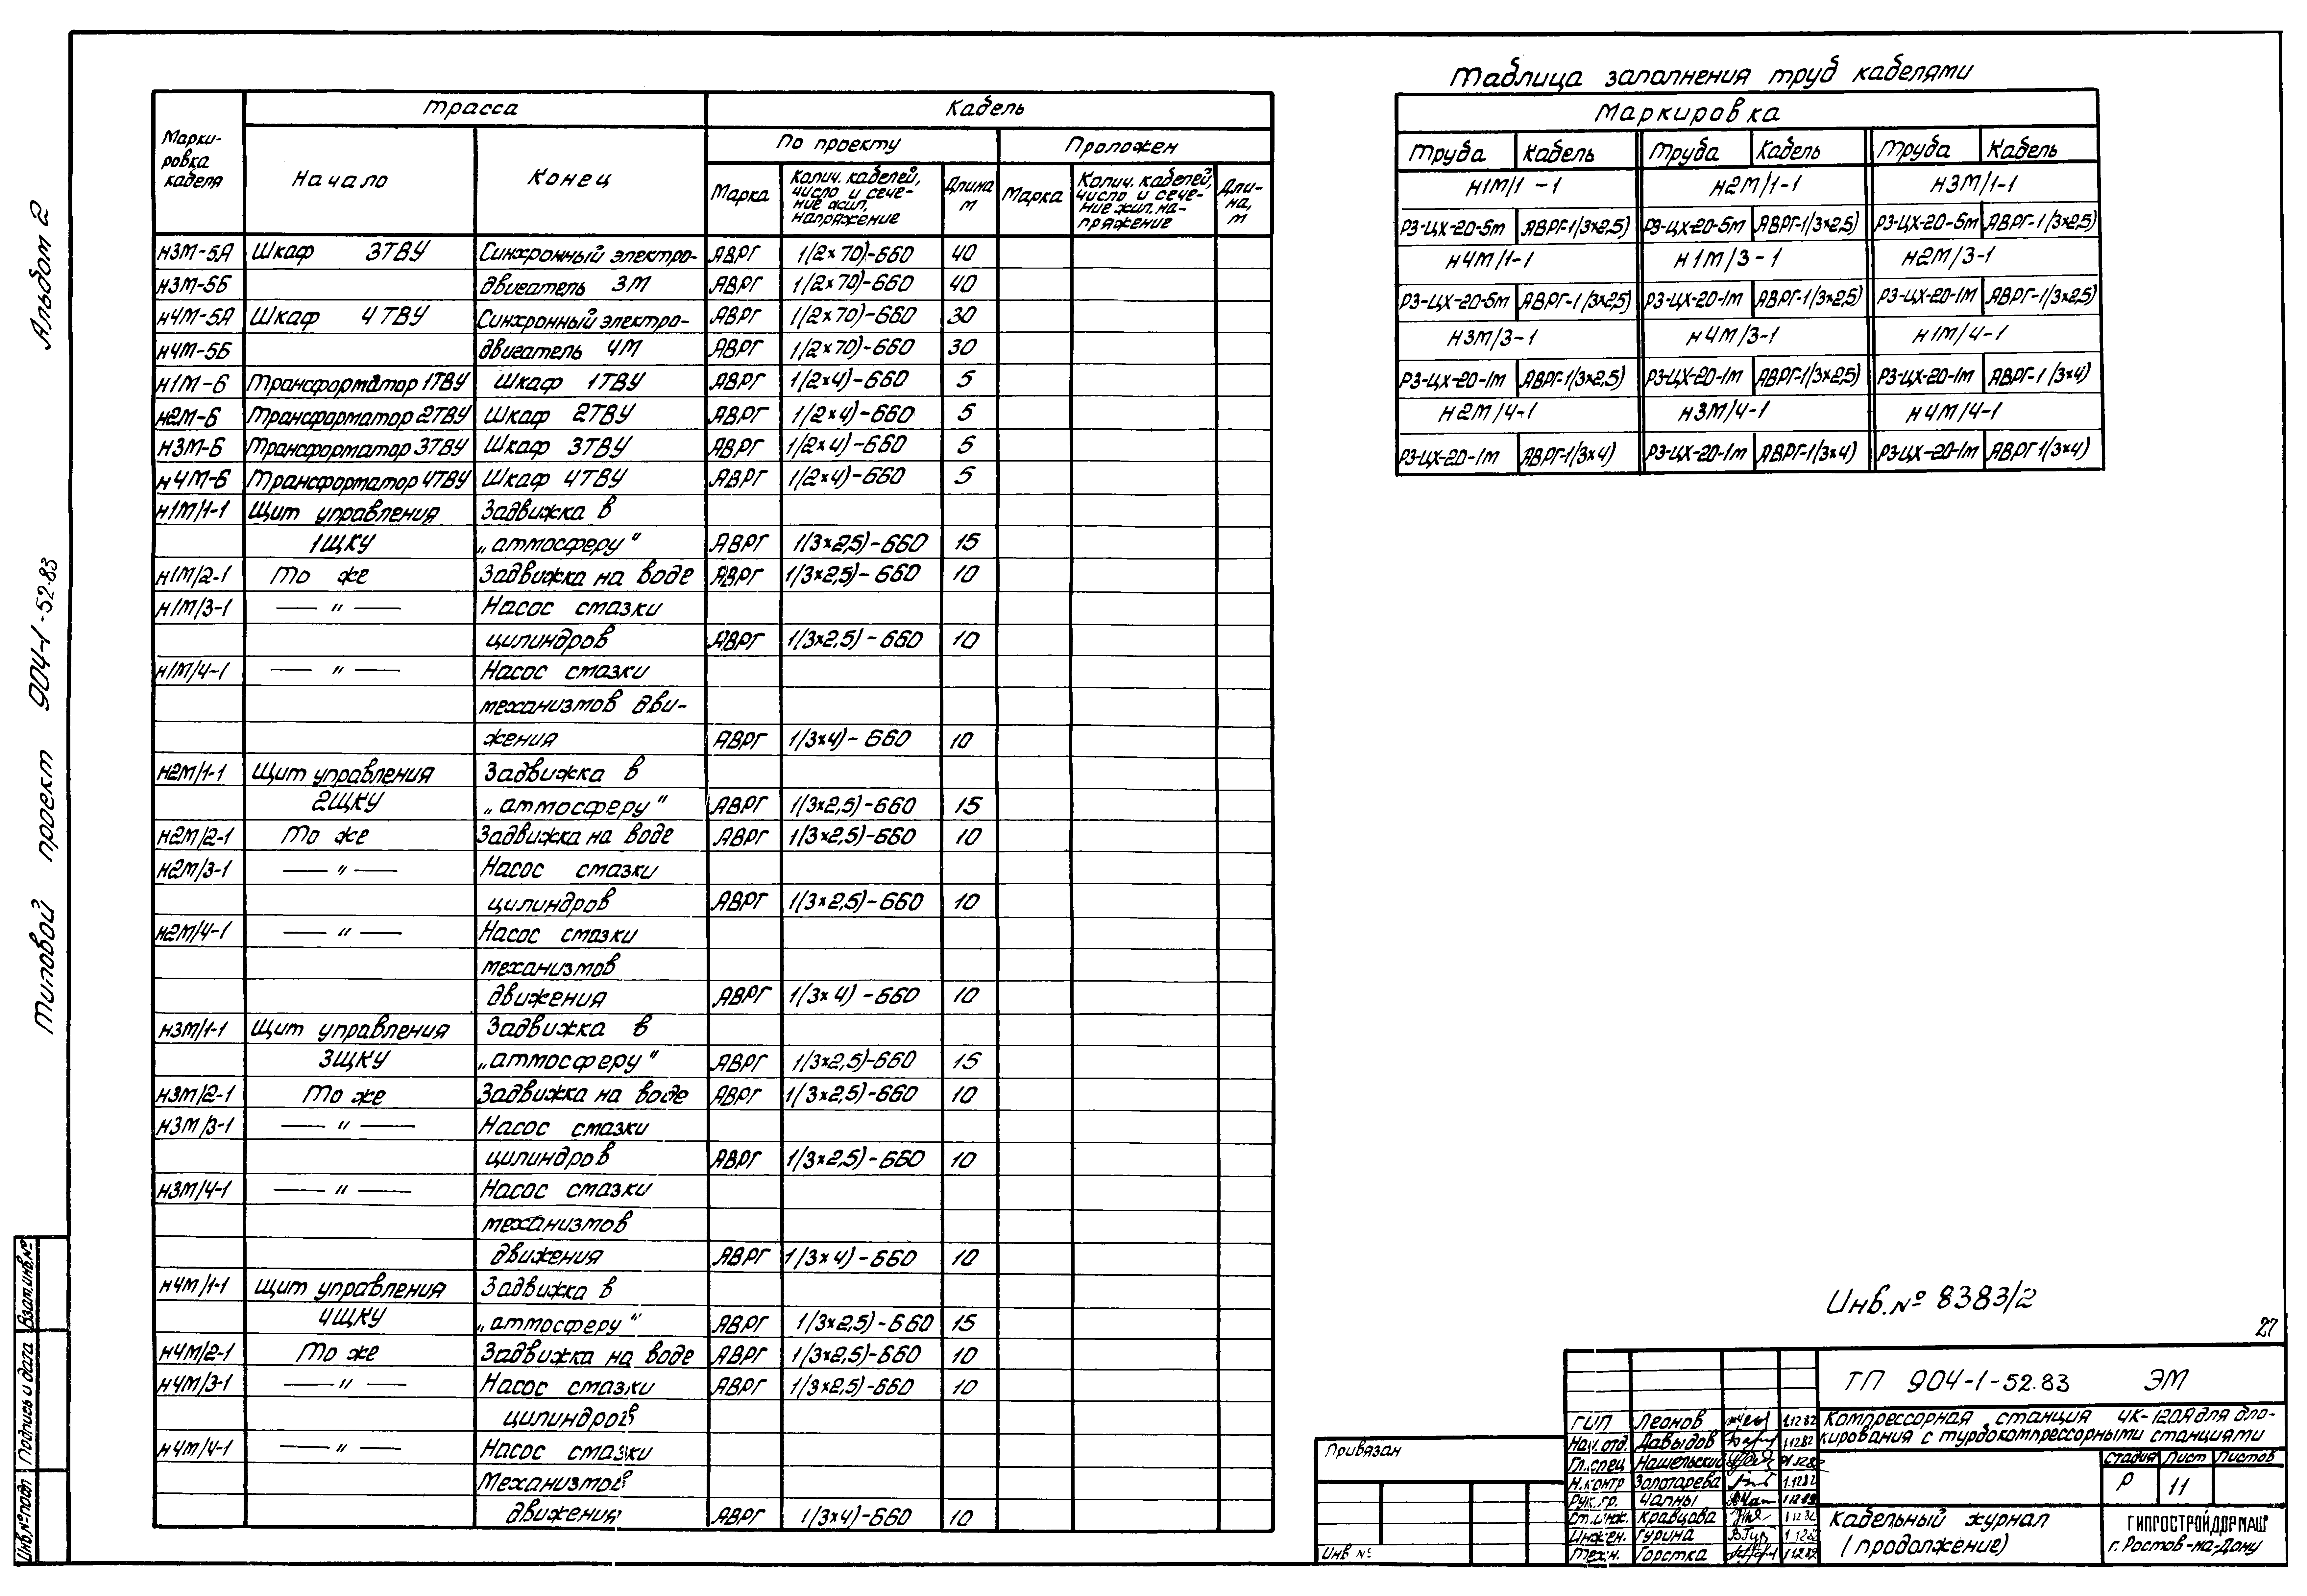 Альбом 2
Типовой проект 904-1-52.83
Взам.инв.№
Подпись и дата
Инв.№подл
Марки-
ровка
кабеля
Трасса
Кабель
Начало
Конец
По проекту
Проложен
Марка
Колич. кабелей,
число и сече-
ние жил,
напряжение
Длина
м
Марка
Колич. кабелей,
число и сече-
ние жил, на-
пряжение
Дли-
на,
м
н3М-5А Шкаф 3ТВУ Синхронный электро- АВРГ 1(2×70)-660 40
н3М-5Б двигатель 3М АВРГ 1(2×70)-660 40
н4М-5А Шкаф 4ТВУ Синхронный электро- АВРГ 1(2×70)-660 30
н4М-5Б двигатель 4М АВРГ 1(2×70)-660 30
н1М-6 Трансформатор 1ТВУ Шкаф 1ТВУ АВРГ 1(2×4)-660 5
н2М-6 Трансформатор 2ТВУ Шкаф 2ТВУ АВРГ 1(2×4)-660 5
н3М-6 Трансформатор 3ТВУ Шкаф 3ТВУ АВРГ 1(2×4)-660 5
н4М-6 Трансформатор 4ТВУ Шкаф 4ТВУ АВРГ 1(2×4)-660 5
н1М/1-1 Щит управления Задвижка в
1ЩКУ „атмосферу" АВРГ 1(3×2,5)-660 15
н1М/2-1 То же Задвижка на воде АВРГ 1(3×2,5)-660 10
н1М/3-1 — " — Насос смазки
цилиндров АВРГ 1(3×2,5)-660 10
н1М/4-1 — " — Насос смазки
механизмов дви-
жения АВРГ 1(3×4)-660 10
н2М/1-1 Щит управления Задвижка в
2ЩКУ „атмосферу" АВРГ 1(3×2,5)-660 15
н2М/2-1 То же Задвижка на воде АВРГ 1(3×2,5)-660 10
н2М/3-1 — " — Насос смазки
цилиндров АВРГ 1(3×2,5)-660 10
н2М/4-1 — " — Насос смазки
механизмов
движения АВРГ 1(3×4)-660 10
н3М/1-1 Щит управления Задвижка в
3ЩКУ „атмосферу" АВРГ 1(3×2,5)-660 15
н3М/2-1 То же Задвижка на воде АВРГ 1(3×2,5)-660 10
н3М/3-1 — " — Насос смазки
цилиндров АВРГ 1(3×2,5)-660 10
н3М/4-1 — " — Насос смазки
механизмов
движения АВРГ 1(3×4)-660 10
н4М/1-1 Щит управления Задвижка в
4ЩКУ „атмосферу" АВРГ 1(3×2,5)-660 15
н4М/2-1 То же Задвижка на воде АВРГ 1(3×2,5)-660 10
н4М/3-1 — " — Насос смазки АВРГ 1(3×2,5)-660 10
цилиндров
н4М/4-1 — " — Насос смазки
Механизмов
движения АВРГ 1(3×4)-660 10
Таблица заполнения труб кабелями
Маркировка
Труба Кабель Труба Кабель Труба Кабель
н1М/1-1 н2М/1-1 н3М/1-1
РЗ-ЦХ-20-5м АВРГ-1(3×2,5) РЗ-ЦХ-20-5м АВРГ-1(3×2,5) РЗ-ЦХ-20-5м АВРГ-1(3×2,5)
н4М/1-1 н1М/3-1 н2М/3-1
РЗ-ЦХ-20-5м АВРГ-1(3×2,5) РЗ-ЦХ-20-1м АВРГ-1(3×2,5) РЗ-ЦХ-20-1м АВРГ-1(3×2,5)
н3М/3-1 н4М/3-1 н1М/4-1
РЗ-ЦХ-20-1м АВРГ-1(3×2,5) РЗ-ЦХ-20-1м АВРГ-1(3×2,5) РЗ-ЦХ-20-1м АВРГ-1(3×4)
н2М/4-1 н3М/4-1 н4М/4-1
РЗ-ЦХ-20-1м АВРГ-1(3×4) РЗ-ЦХ-20-1м АВРГ-1(3×4) РЗ-ЦХ-20-1м АВРГ 1(3×4)
Инв.№ 8383/2
27
Привязан
Инв №
ГИП Леонов 1.12.82
Нач.отд. Давыдов 1.12.82
Гл.спец Нашельский
Н.контр Золотарева 1.12.82
Рук.гр. Чапны 1.12.82
Ст.инж. Кравцова 1.12.82
Инжен. Гурина 1.12.82
Техн. Горстка 1.12.82
ТП 904-1-52.83 ЭМ
Компрессорная станция 4К-120А для бло-
кирования с турбокомпрессорными станциями
Стадия Лист Листов
Р 11
Кабельный журнал
(продолжение)
ГИПРОСТРОЙДОРМАШ
г. Ростов-на-Дону